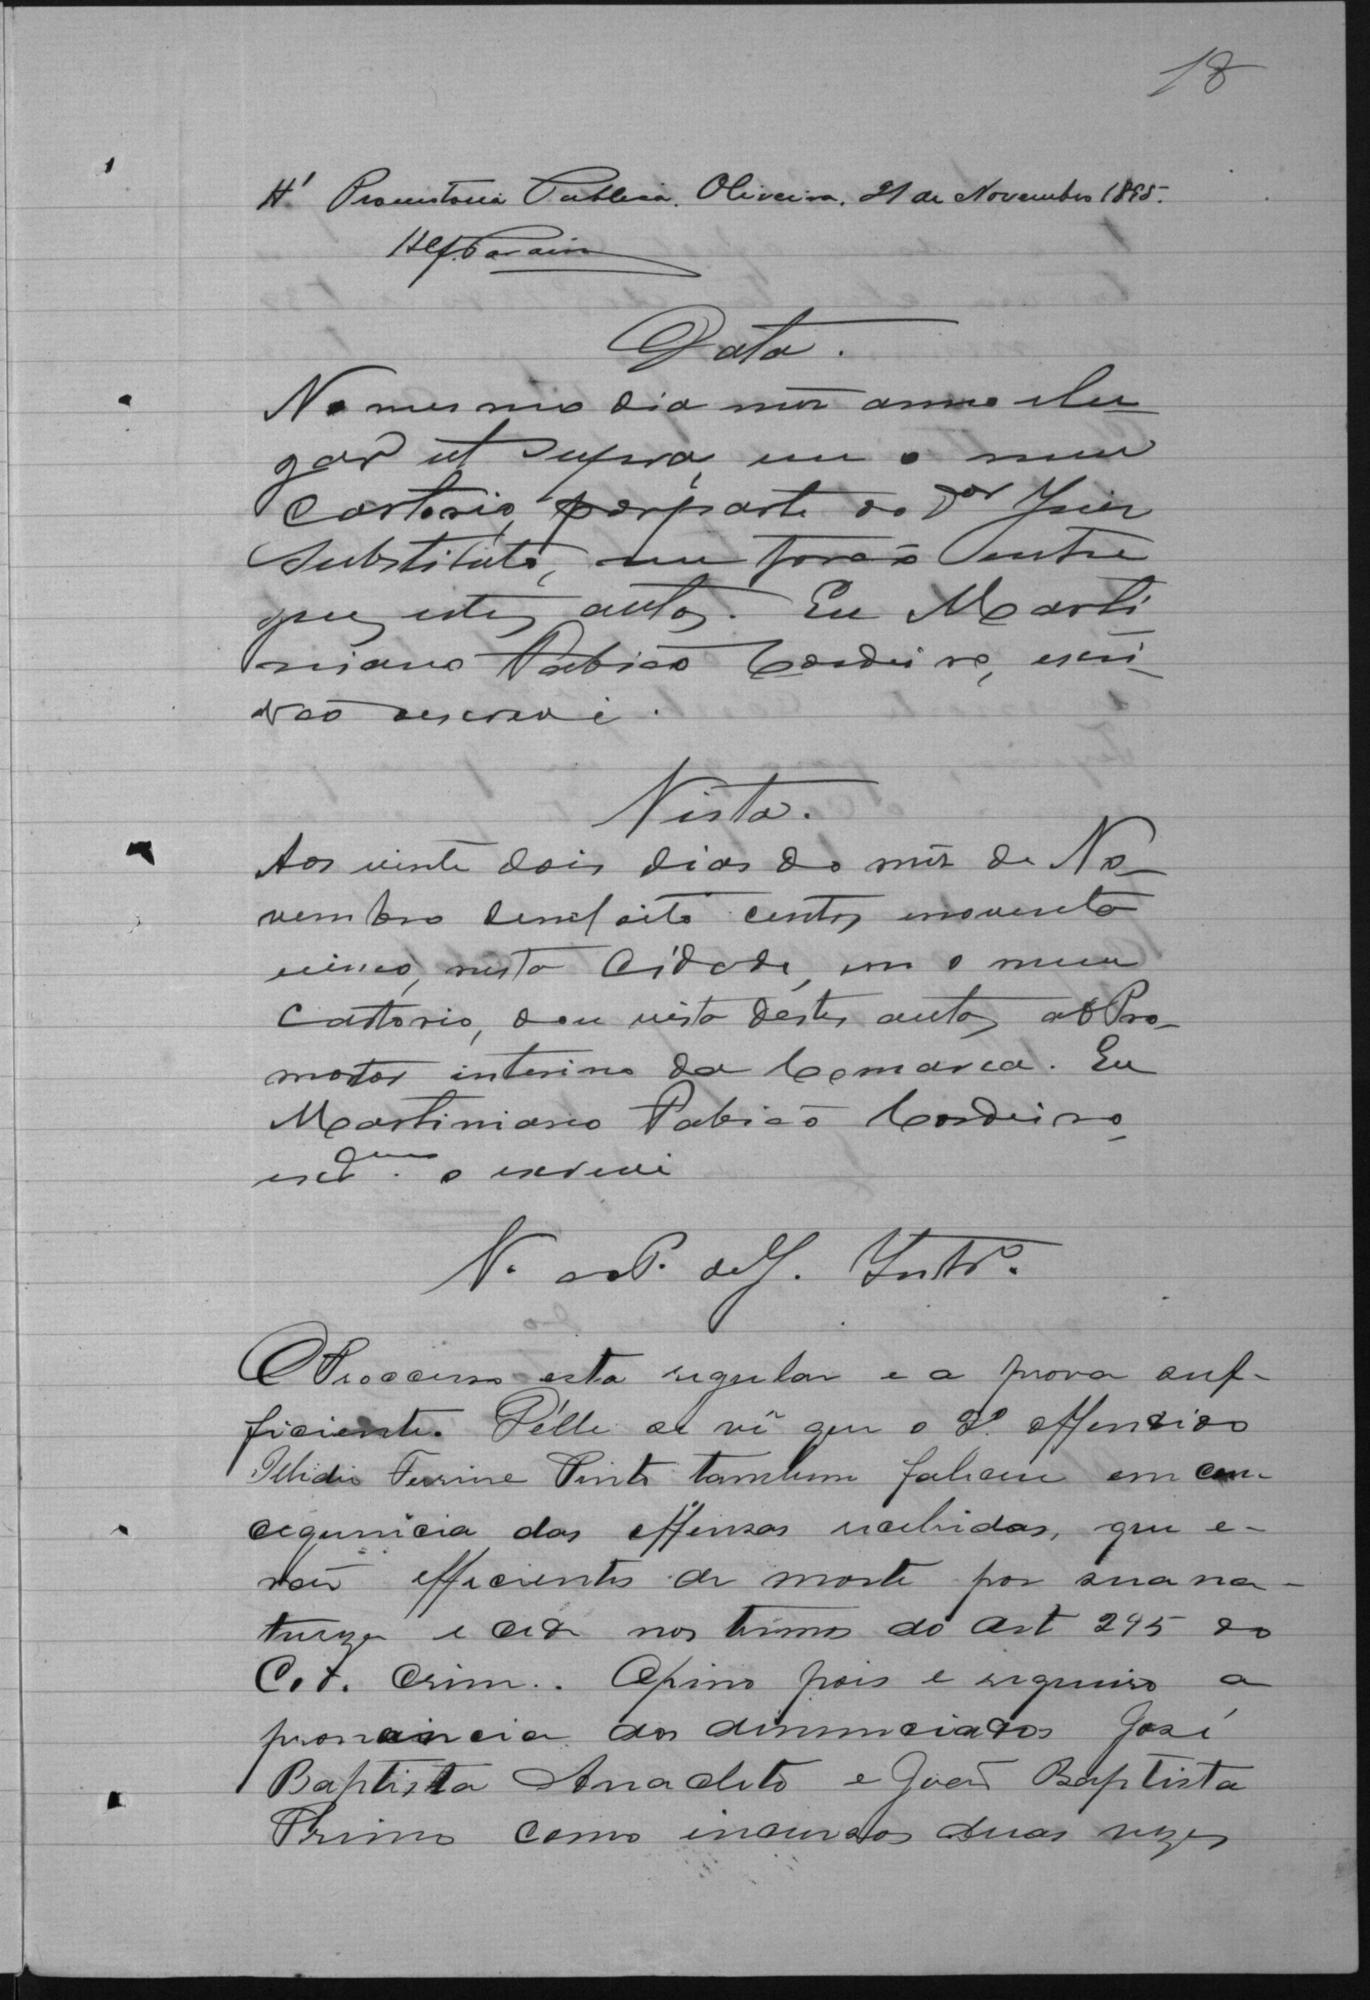 18
A' Promotoria Publica. Oliveira, 21 de Novembro 1895.
Data.
No mesmo dia mez anno e lu-
gar ut supra, em o meu
Cartorio, por parte do Dor Juiz
Substituto, me forão entre
gues estes autos. Eu Marti
niano Fabião Cordeiro, escri-
vão o escrevi.
Vista.
Aos vinte dois dias do mez de No-
vembro de mil oito centos e noventa
e cinco, nesta Cidade, em o meu
Cartorio, dou vista destes autos ao Pro-
motor interino da Comarca. Eu
Martiniano Fabião Cordeiro,
o escrevi
V. ao P. de J. Intro.
O Processo esta regular e a prova suf-
ficiente. D'elle se vê que o 2º offendido
Pinto tambem faleceu em con-
cequencia das offensas recebidas, que e-
rão efficientes de morte por sua na-
tureza e séde nos termos do art 295 do
Cod. Crim.. Opino pois e requeiro a
pronuncia dos denunciados José
Baptista Anacleto e João Baptista
Primo como incursos duas vezes